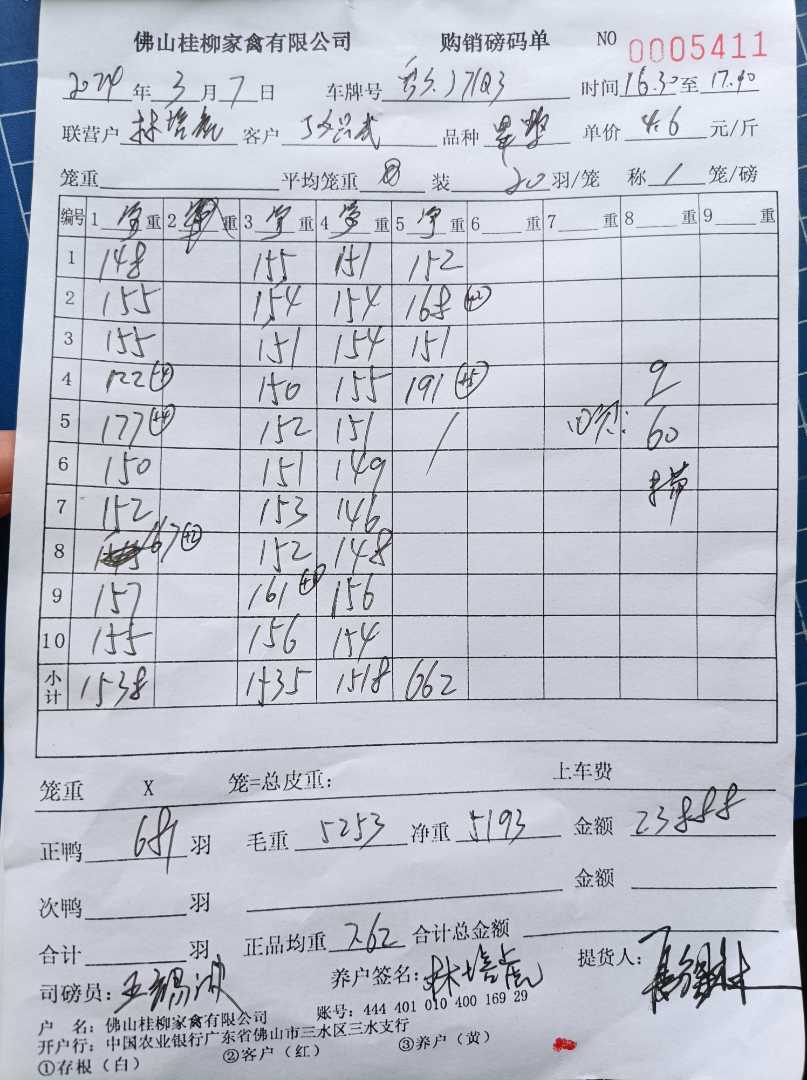 佛山桂柳家禽有限公司 购销磅码单 NO 0005411
2024年3月7日 车牌号 J71Q3 时间16.30至17.40
联营户 林培虎 客户 品种 单价 4.6 元/斤
笼重 平均笼重 装 20 羽/笼 称 1 笼/磅
编号 1 重 2 重 3 重 4 重 5 重 6 重 7 重 8 重 9 重
1 148 155 151 152
2 155 154 154 168 +2
3 155 151 154 151
4 122 -4 150 155 191 +5
5 177 +4 152 151 / 60
6 150 151 149
7 152 153 146
8 167 +2 152 148
9 157 161 156
10 155 156 154
小计 1538 1535 1518 662
笼重 X 笼=总皮重: 上车费
正鸭 681 羽 毛重 5253 净重 5193 金额 23888
次鸭 羽 金额
合计 羽 正品均重 7.62 合计总金额
司磅员: 养户签名: 林培虎 提货人:
户 名: 佛山桂柳家禽有限公司 账号: 444 401 010 400 169 29
开户行: 中国农业银行广东省佛山市三水区三水支行
①存根(白) ②客户(红) ③养户(黄)